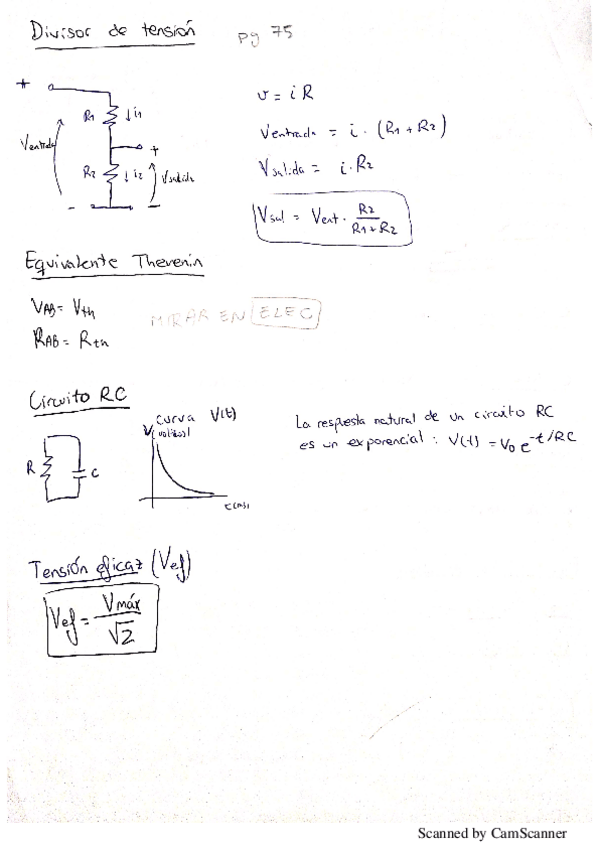 Divisor de tensión pg 75
+
R1 ↓i1
Ventrada
+
R2 ↓i2 Vsalida
- -
v = i R
Ventrada = i · (R1 + R2)
Vsalida = i · R2
Vsal = Vent · R2 / R1 + R2
Equivalente Thevenin
VAB = Vth
RAB = Rth
MIRAR EN ELEC
Circuito RC
R C
curva V(t)
V(voltios)
La respuesta natural de un circuito RC
es un exponencial : V(t) = V0 e^-t/RC
Tensión eficaz (Vef)
Vef = Vmáx / √2
Scanned by CamScanner